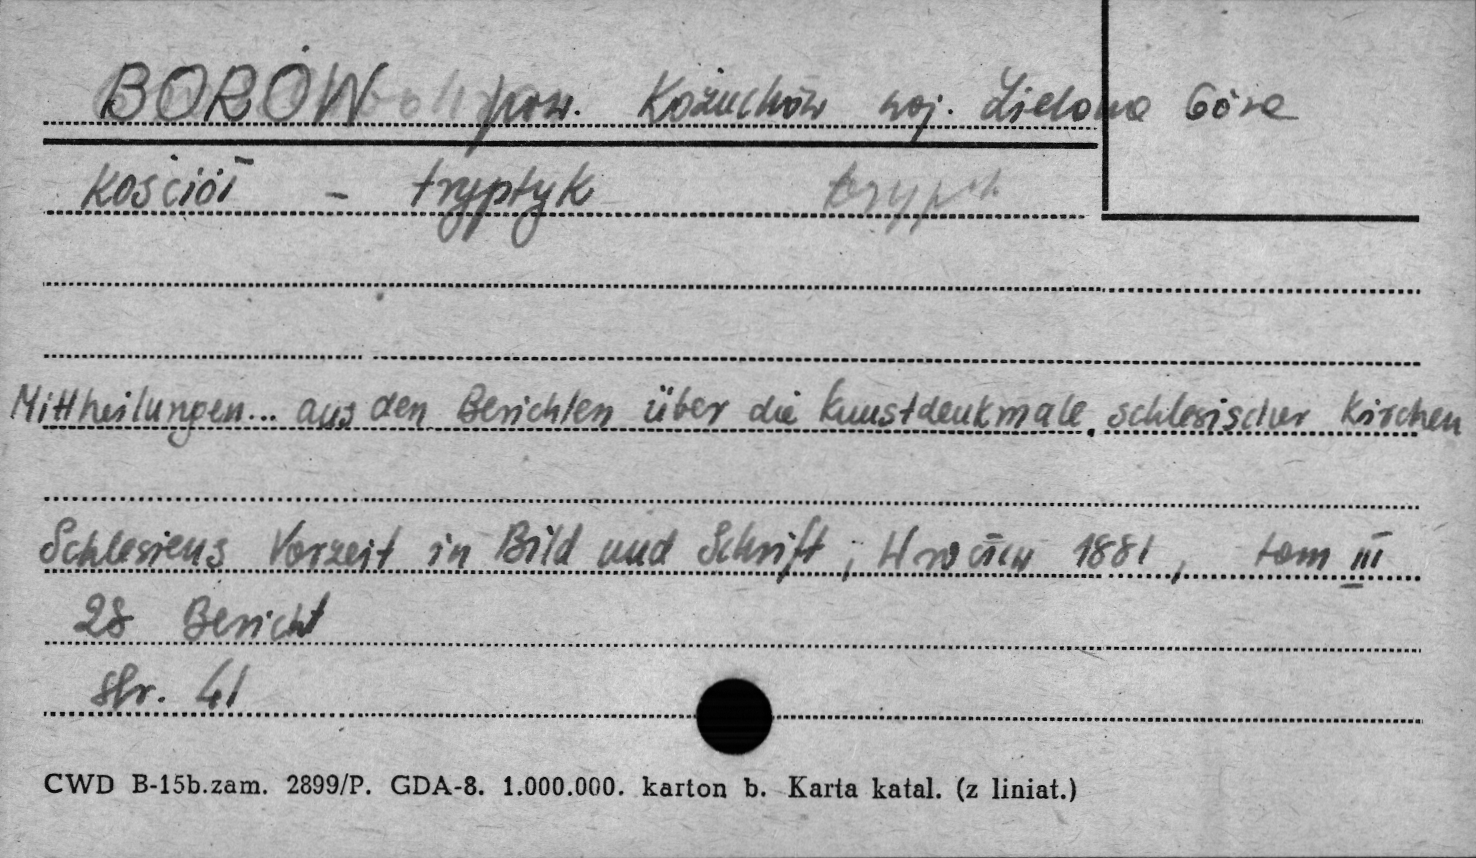 BORÓW pow. Kożuchów woj. Zielona Góra
Kościół - tryptyk
Mittheilungen... aus den Berichten über die Kunstdenkmale schlesischer Kirchen
Schlesiens Vorzeit in Bild und Schrift; Wrocław 1881, tom III
28 Bericht
str. 41
CWD B-15b.zam. 2899/P. GDA-8. 1.000.000. karton b. Karta katal. (z liniat.)